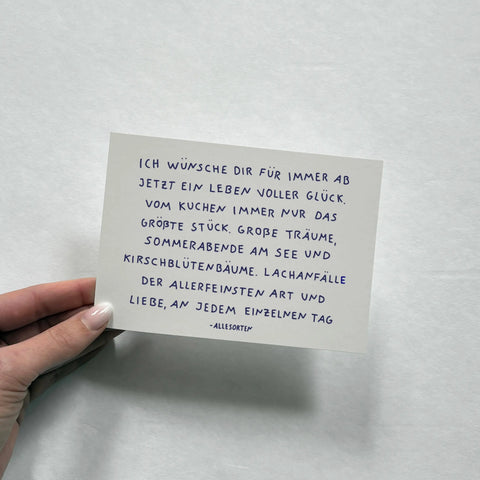 ICH WÜNSCHE DIR FÜR IMMER AB
JETZT EIN LEBEN VOLLER GLÜCK.
VOM KUCHEN IMMER NUR DAS
GRÖßTE STÜCK. GROßE TRÄUME,
SOMMERABENDE AM SEE UND
KIRSCHBLÜTENBÄUME. LACHANFÄLLE
DER ALLERFEINSTEN ART UND
LIEBE, AN JEDEM EINZELNEN TAG
-ALLESORTEN